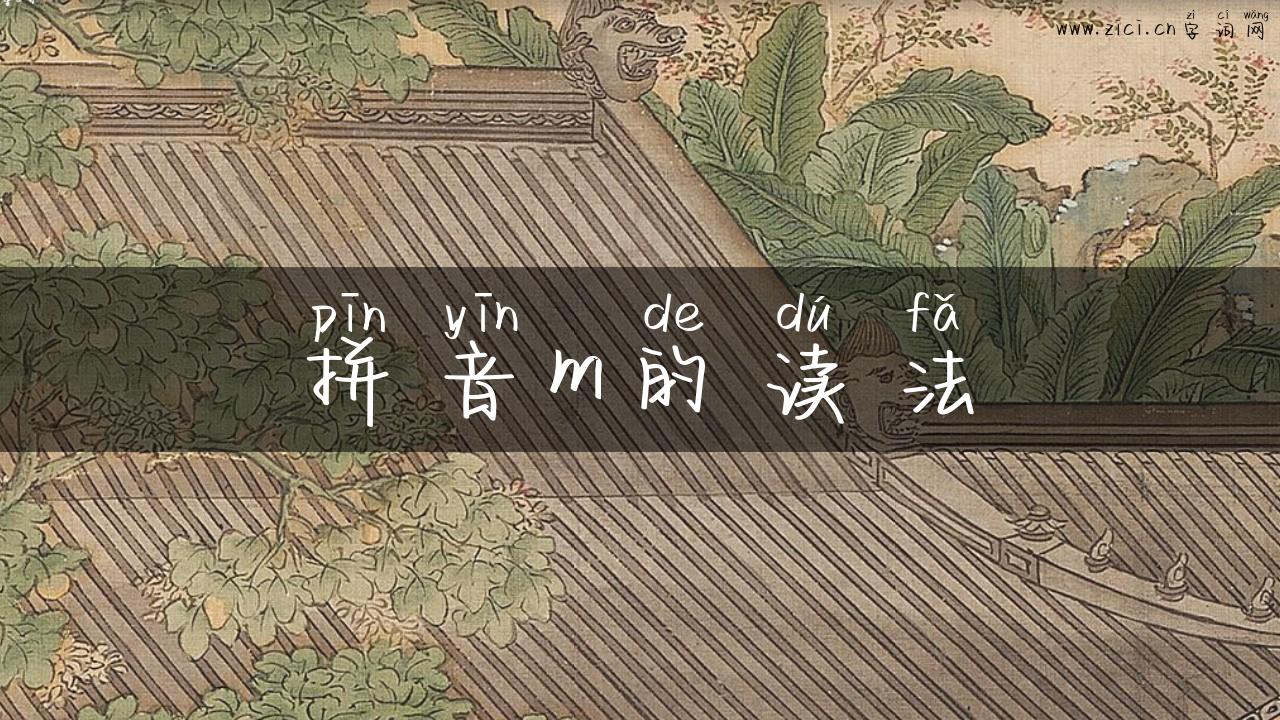 zì cí wǎng
www.zici.cn 字词网
pīn yīn de dú fǎ
拼音m的读法